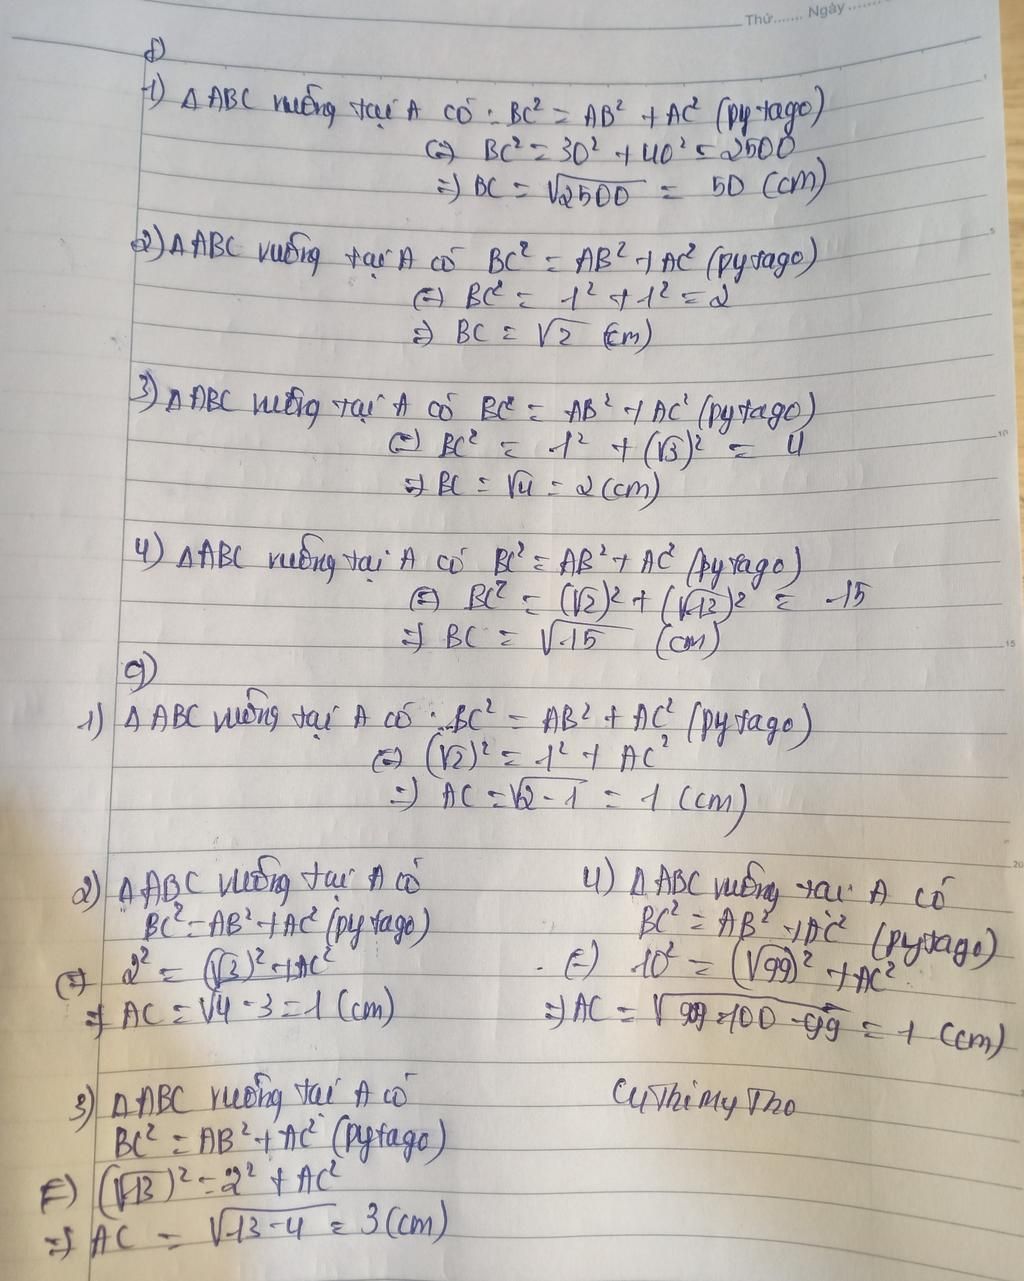 Thứ....... Ngày.......
8)
1) ΔABC vuông tại A có : BC² = AB² + AC² (pytago)
(=) BC² = 30² + 40² = 2500
=) BC = √2500 = 50 (cm)
2) ΔABC vuông tại A có BC² = AB² + AC² (pytago)
(=) BC² = 1² + 1² = 2
=) BC = √2 (cm)
3) ΔABC vuông tại A có BC² = AB² + AC² (pytago)
(=) BC² = 1² + (√3)² = 4
=) BC = √4 = 2 (cm)
4) ΔABC vuông tại A có BC² = AB² + AC² (pytago)
(=) BC² = (√2)² + (√13)² = 15
=) BC = √15 (cm)
9)
1) ΔABC vuông tại A có : BC² = AB² + AC² (pytago)
(=) (√2)² = 1² + AC²
=) AC = √2-1 = 1 (cm)
2) ΔABC vuông tại A có
BC² = AB² + AC² (pytago)
(=) 2² = (√3)² + AC²
=) AC = √4-3 = 1 (cm)
3) ΔABC vuông tại A có
BC² = AB² + AC² (pytago)
(=) (√13)² = 2² + AC²
=) AC = √13-4 = 3 (cm)
4) ΔABC vuông tại A có
BC² = AB² + AC² (pytago)
(=) 10² = (√99)² + AC²
=) AC = √100-99 = 1 (cm)
CuThiMyTho
5
10
15
20